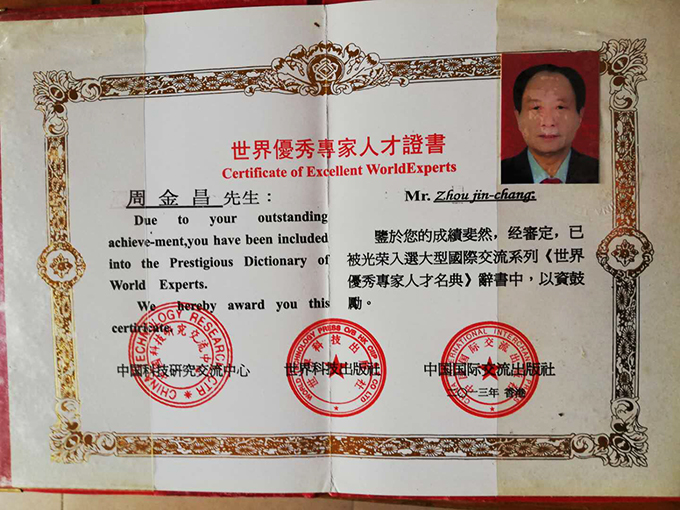 世界優秀專家人才證書
Certificate of Excellent WorldExperts
周金昌 先生：
Due to your outstanding
achieve-ment,you have been included
into the Prestigious Dictionary of
World Experts.
We hereby award you this
certricate.
Mr. Zhou jin-chang:
鑒於您的成績斐然，经審定，已
被光荣入選大型國際交流系列《世界
優秀專家人才名典》辭書中，以資鼓
勵。
中国科技研究交流中心
世界科技出版社
中国国际交流出版社
二〇一三年 香港
CHINA TECHNOLOGY RESEARCH
世界科技出版社
WORLD TECHNOLOGY PRESS
中国国际交流出版社